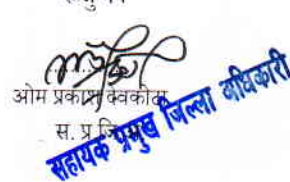 ओम प्रकाश देवकोटा
स. प्र. जि. अ.
सहायक प्रमुख जिल्ला अधिकारी